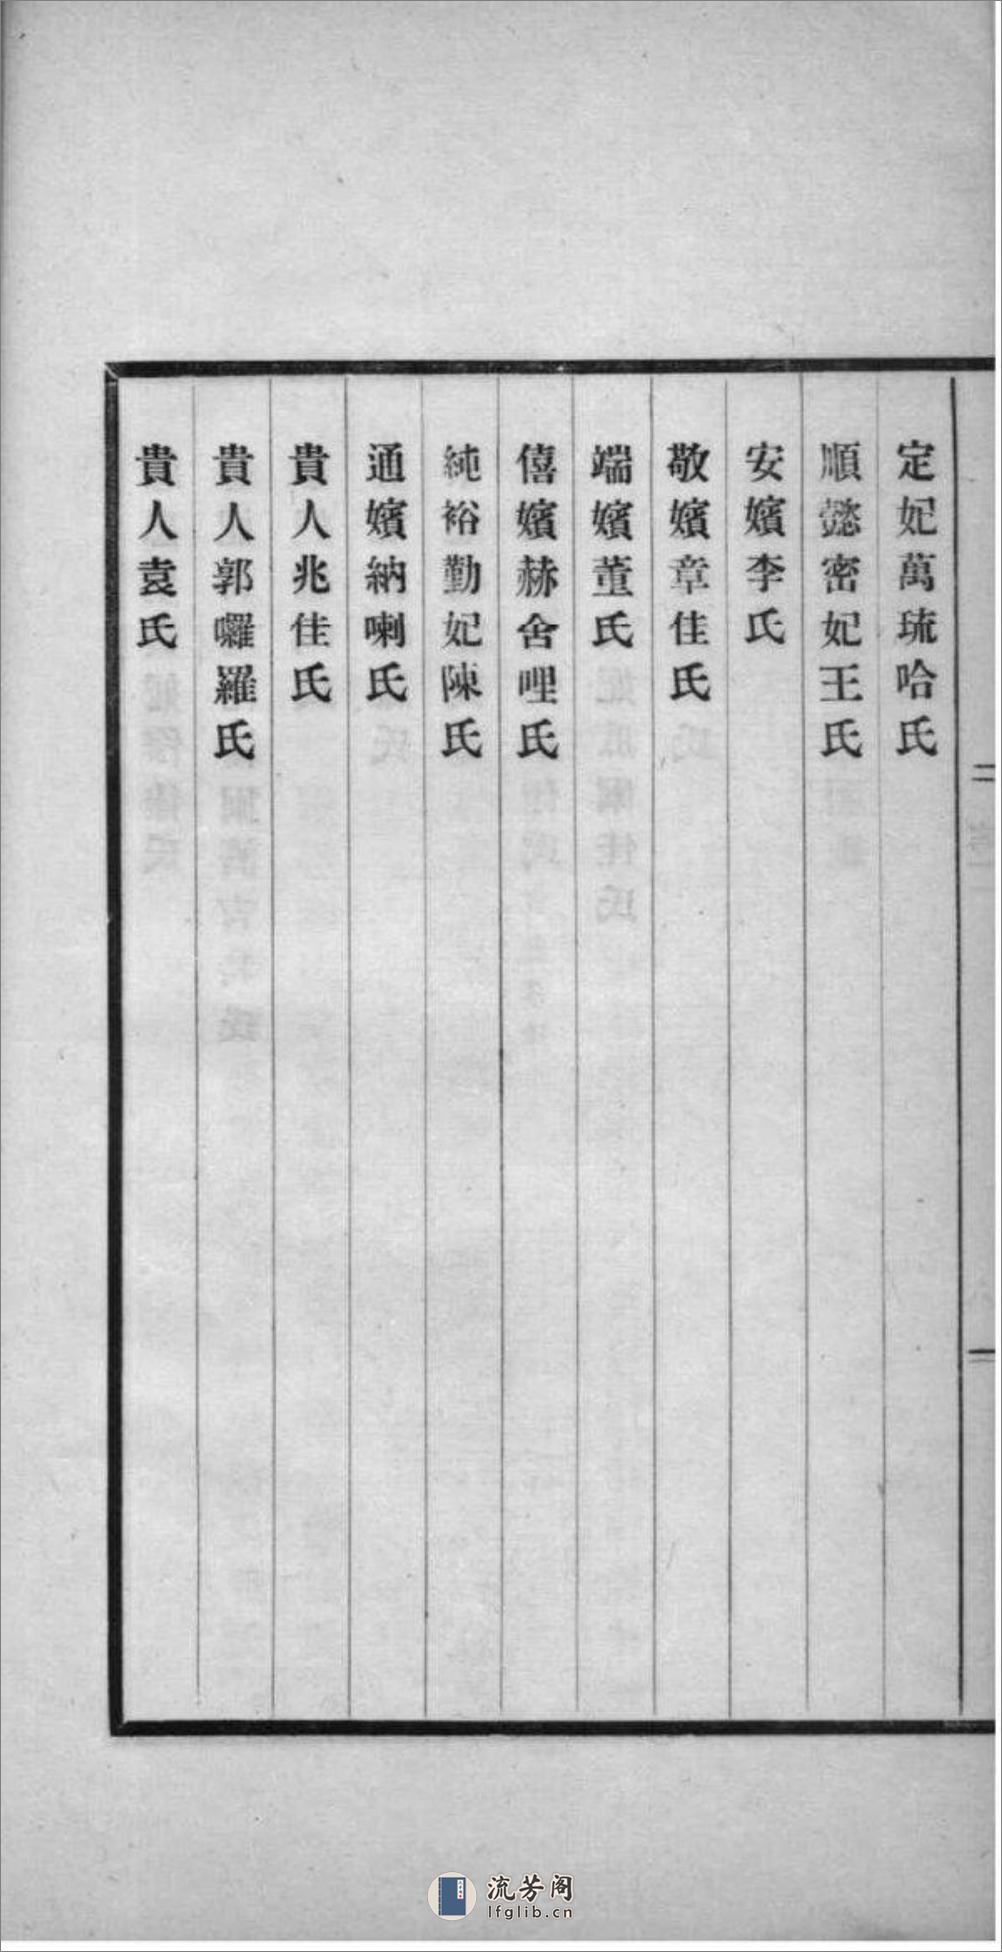 定妃萬琉哈氏
順懿密妃王氏
安嬪李氏
敬嬪章佳氏
端嬪董氏
僖嬪赫舍哩氏
純裕勤妃陳氏
通嬪納喇氏
貴人兆佳氏
貴人郭囉羅氏
貴人袁氏
流芳阁
lfglib.cn